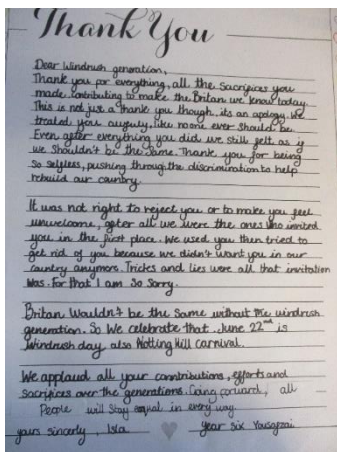 Thank You
Dear Windrush generation,
Thank you for everything, all the sacrifices you
made contributing to make the Britan we know today.
This is not just a thank you though, its an apology. We
treated you awfuly, like no one ever should be.
Even after everything you did we still felt as if
we shouldn't be the same. Thank you for being
so selfless, pushing through the discrimination to help
rebuild our country.
It was not right to reject you or to make you feel
unwelcome, after all we were the ones who invited
you in the first place. We used you then tried to
get rid of you because we didn't want you in our
country anymore. Tricks and lies were all that invitation
was. For that I am so sorry.
Britan wouldn't be the same without the windrush
generation. So we celebrate that. June 22nd is
Windrush day also Notting Hill carnival.
We applaud all your conntributions, efforts and
sacrifices over the generations. Going forward, all
People will stay equal in every way.
yours sincerly, Isla year six Yousafzai